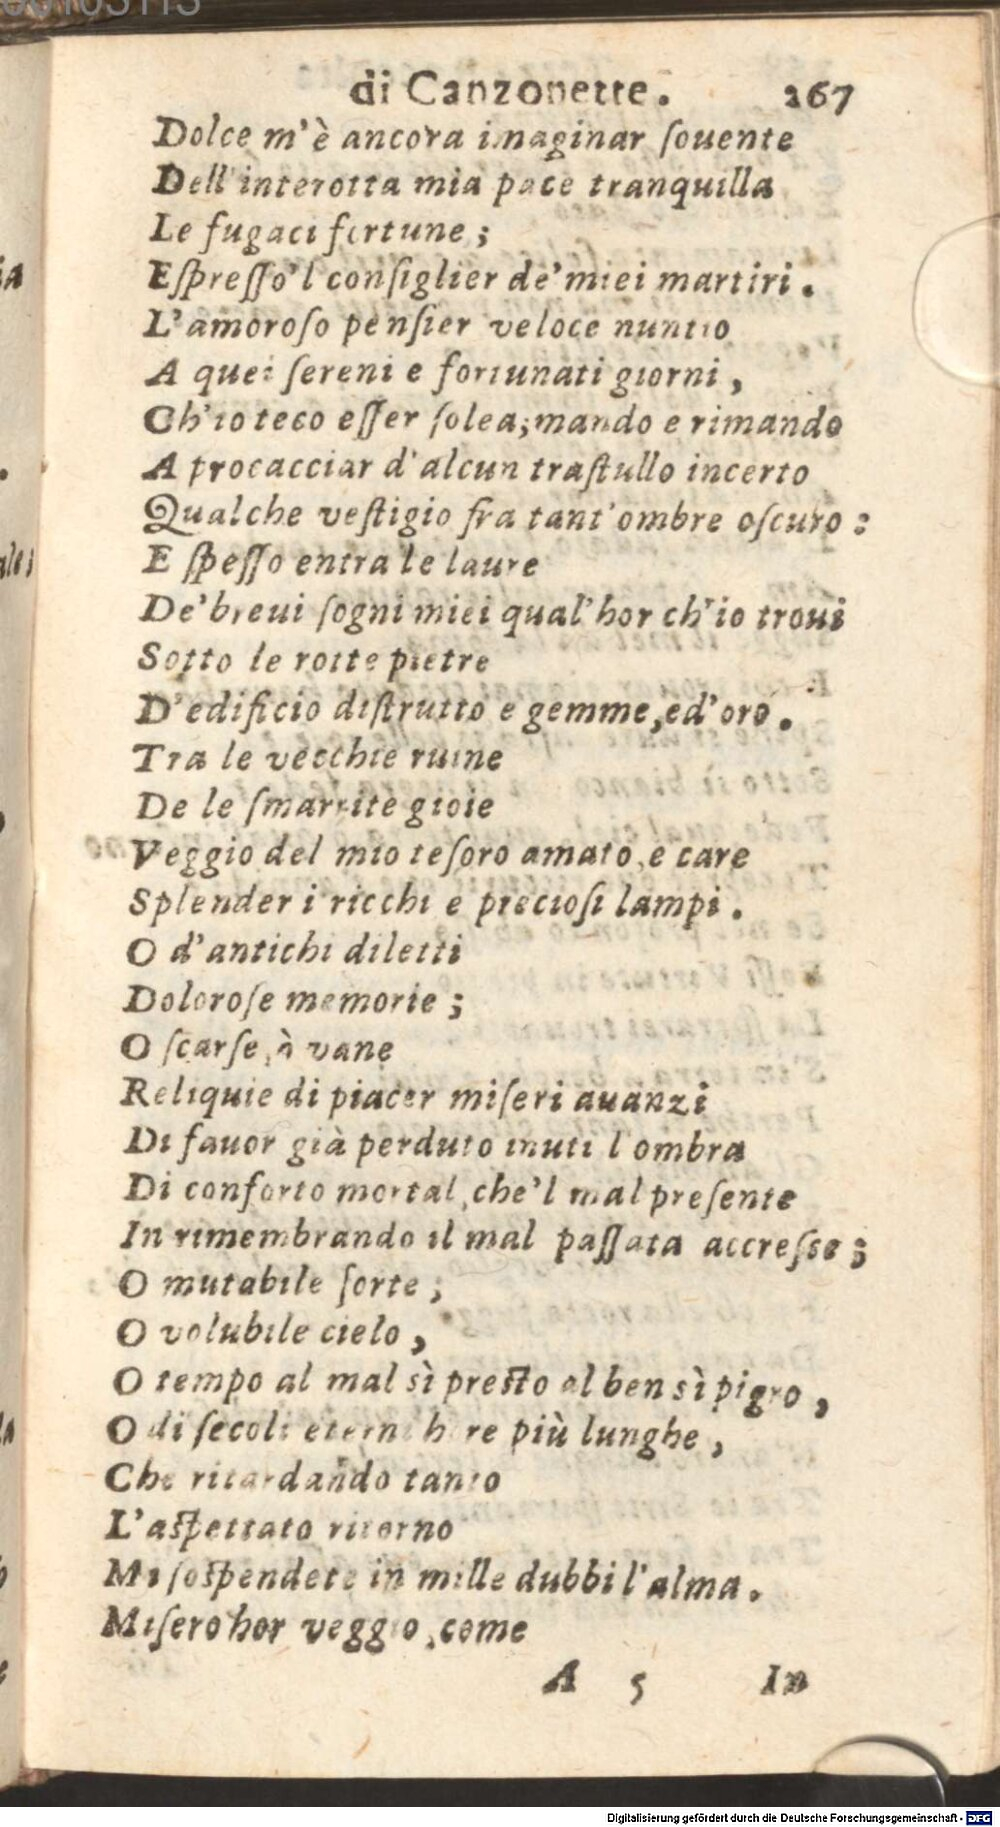 di Canzonette. 267
Dolce m'è ancora imaginar ſouente
Dell'interotta mia pace tranquilla
Le fugaci fortune;
Eſpreſſo'l conſiglier de'miei martiri.
L'amoroſo penſier veloce nuntio
A quei ſereni e fortunati giorni,
Ch'io teco eſſer ſolea;mando e rimando
A procacciar d'alcun traſtullo incerto
Qualche veſtigio fra tant'ombre oſcuro:
E ſpeſſo entra le laure
De'breui ſogni miei qual'hor ch'io troui
Sotto le rotte pietre
D'edificio diſtrutto e gemme,ed'oro.
Tra le vecchie ruine
De le ſmarrite gioie
Veggio del mio teſoro amato, e care
Splender i ricchi e precioſi lampi.
O d'antichi diletti
Doloroſe memorie;
O ſcarſe, ò vane
Reliquie di piacer miſeri auanzi
Di fauor già perduto inuti l'ombra
Di conforto mortal, che'l mal preſente
In rimembrando il mal paſſata accreſce;
O mutabile ſorte;
O volubile cielo,
O tempo al mal sì preſto al ben sì pigro,
O di ſecoli eterni hore più lunghe,
Che ritardando tanto
L'aſpettato ritorno
Mi ſoſpendete in mille dubbi l'alma.
Miſero hor veggio, come
A 5 In
Digitalisierung gefördert durch die Deutsche Forschungsgemeinschaft - DFG